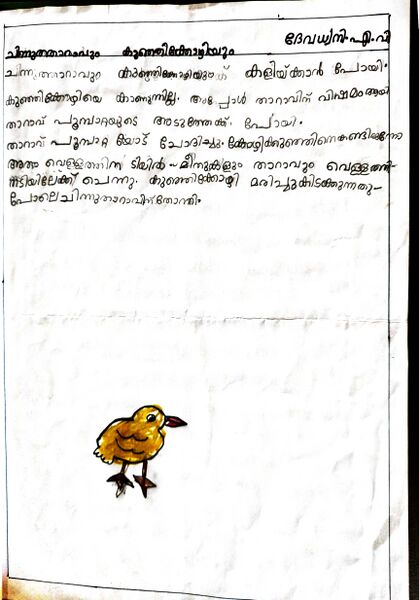 ദേവധ്വനി.എ.വി
ചിന്നുത്താറാവും കുഞ്ഞിക്കോഴിയും
ചിന്നുത്താറാവും കുഞ്ഞിക്കോഴിയും കളിയ്ക്കാൻ പോയി.
കുഞ്ഞിക്കോഴിയെ കാണുന്നില്ല. അപ്പോൾ താറാവിന് വിഷമം ആയി
താറാവ് പൂമ്പാറ്റയുടെ അടുത്തേക്ക് പോയി.
താറാവ് പൂമ്പാറ്റ യോട് ചോദിച്ചു. കോഴിക്കുഞ്ഞിനെ കണ്ടിരുന്നോ
വെള്ളത്തിന മീനുകളും താറാവും വെള്ളത്തി-
നടിയിലേക്ക് ചെന്നു. കുഞ്ഞിക്കോഴി മരിച്ചുകിടക്കുന്നതു-
പോലെ ചിന്നുതാറാവിന് തോന്നി.